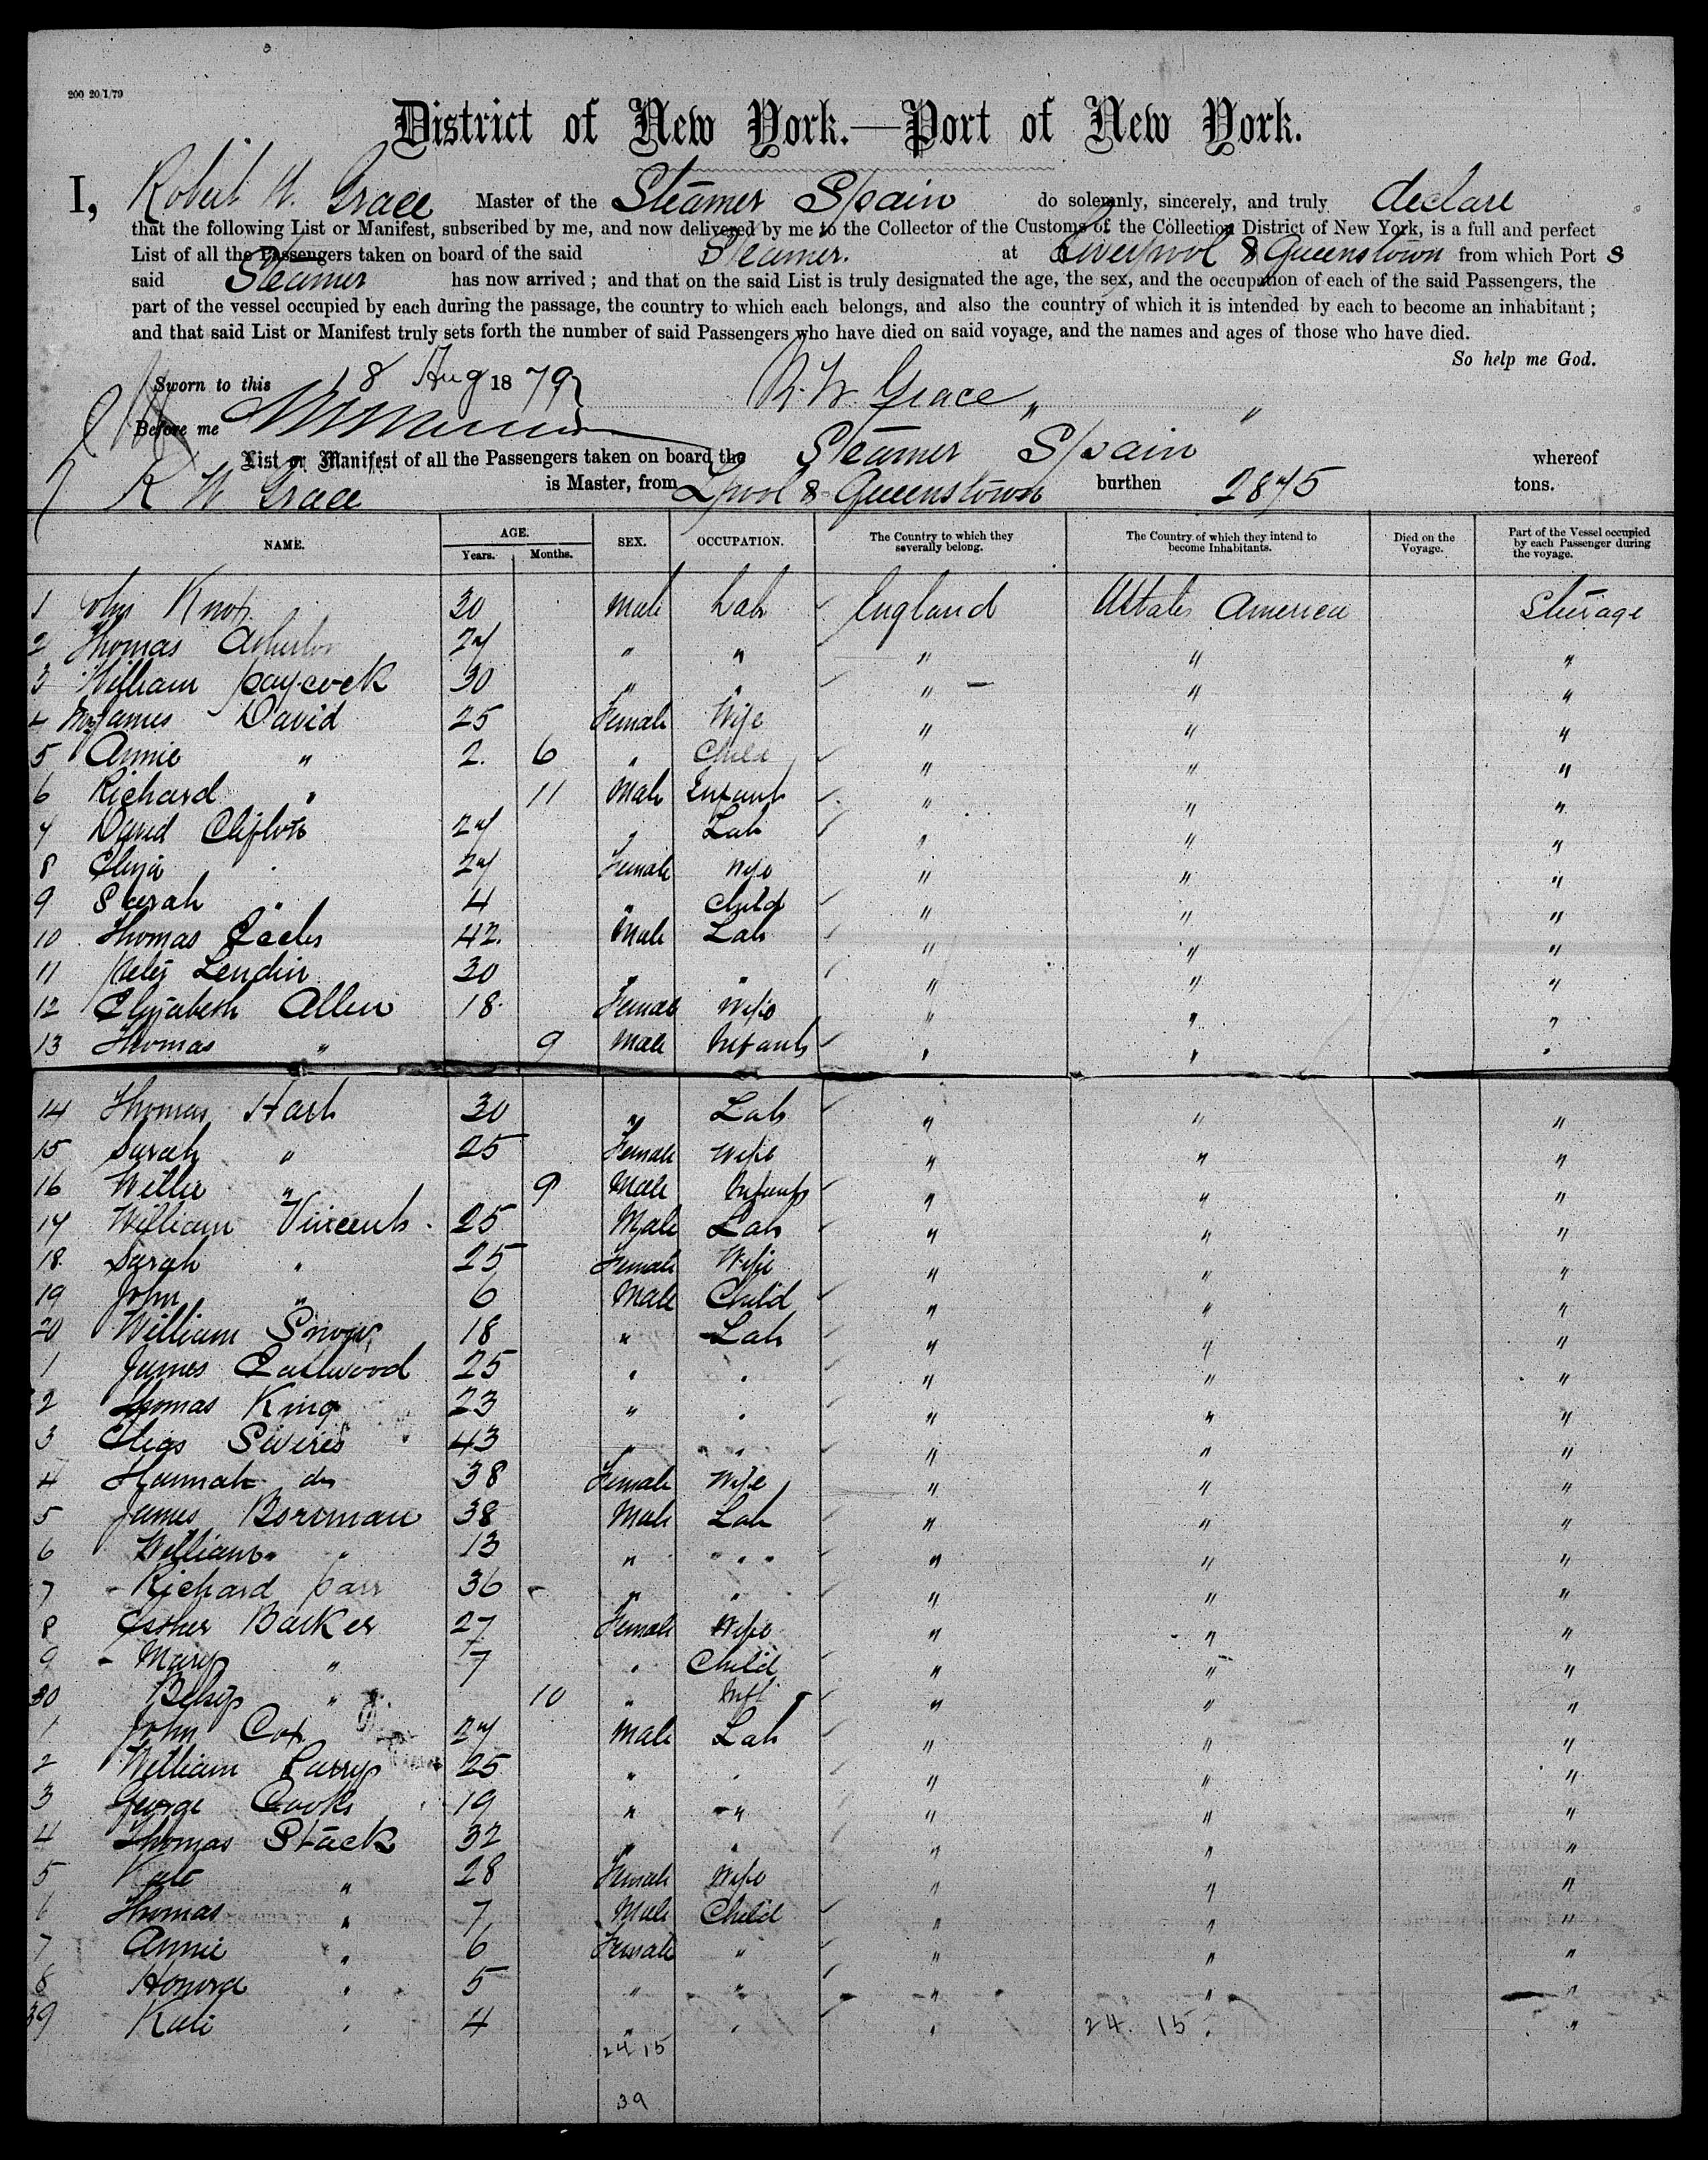 200 20/1/79
District of New York.—Port of New York.
I, Robert W. Grace Master of the Steamer Spain do solemnly, sincerely, and truly declare
that the following List or Manifest, subscribed by me, and now delivered by me to the Collector of the Customs of the Collection District of New York, is a full and perfect
List of all the Passengers taken on board of the said Steamer. at Liverpool & Queenstown from which Port s
said Steamer has now arrived ; and that on the said List is truly designated the age, the sex, and the occupation of each of the said Passengers, the
part of the vessel occupied by each during the passage, the country to which each belongs, and also the country of which it is intended by each to become an inhabitant ;
and that said List or Manifest truly sets forth the number of said Passengers who have died on said voyage, and the names and ages of those who have died.
So help me God.
Sworn to this 18 Aug 1879 R. W. Grace " "
Before me
List or Manifest of all the Passengers taken on board the Steamer Spain whereof
R W Grace is Master, from Lpool & Queenstown burthen 2875 tons.
NAME. AGE. Years. Months. SEX. OCCUPATION. The Country to which they severally belong. The Country of which they intend to become Inhabitants. Died on the Voyage. Part of the Vessel occupied by each Passenger during the voyage.
1 John Knox 30 Male Lab England UStates America Steerage
2 Thomas 27 " " " " "
3 William paycock 30 " " " " "
4 Mrs James David 25 Female Wife " " "
5 Annie " 2. 6 " Child " " "
6 Richard " 11 Male Infant " " "
7 David Clifton 27 " Lab " " "
8 Eliza 27 Female Wife " " "
9 Sarah " 4 " Child " " "
10 Thomas Eccles 42. Male Lab " " "
11 Peter 30 " " " " "
12 Elizabeth Allen 18. Female Wife " " "
13 Thomas " 9 Male Infant " " "
14 Thomas Hart 30 " Lab " " "
15 Sarah " 25 Female Wife " " "
16 Willie " 9 Male Infant " " "
17 William Vincent 25 Male Lab " " "
18. Sarah " 25 Female Wife " " "
19 John " 6 Male Child " " "
20 William Snow 18 " Lab " " "
1 James Eastwood 25 " " " " "
2 Thomas King 23 " " " " "
3 Elias 43 " " " " "
4 Hannah do 38 Female Wife " " "
5 James Boreman 38 Male Lab " " "
6 William " 13 " " " " "
7 Richard parr 36 " " " " "
8 Esther Barker 27 Female Wife " " "
9 Mary " 7 " Child " " "
30 Betsy " 10 " Inft " " "
1 John Cox 27 Male Lab " " "
2 William Parry 25 " " " " "
3 George Cooks 19 " " " " "
4 Thomas Stack 32 " " " " "
5 Kate " 28 Female Wife " " "
6 Thomas " 7 Male Child " " "
7 Annie " 6 Female " " " "
8 Honora " 5 " " " " "
39 Kate " 4 " " " 24. 15 " "
24 15
39